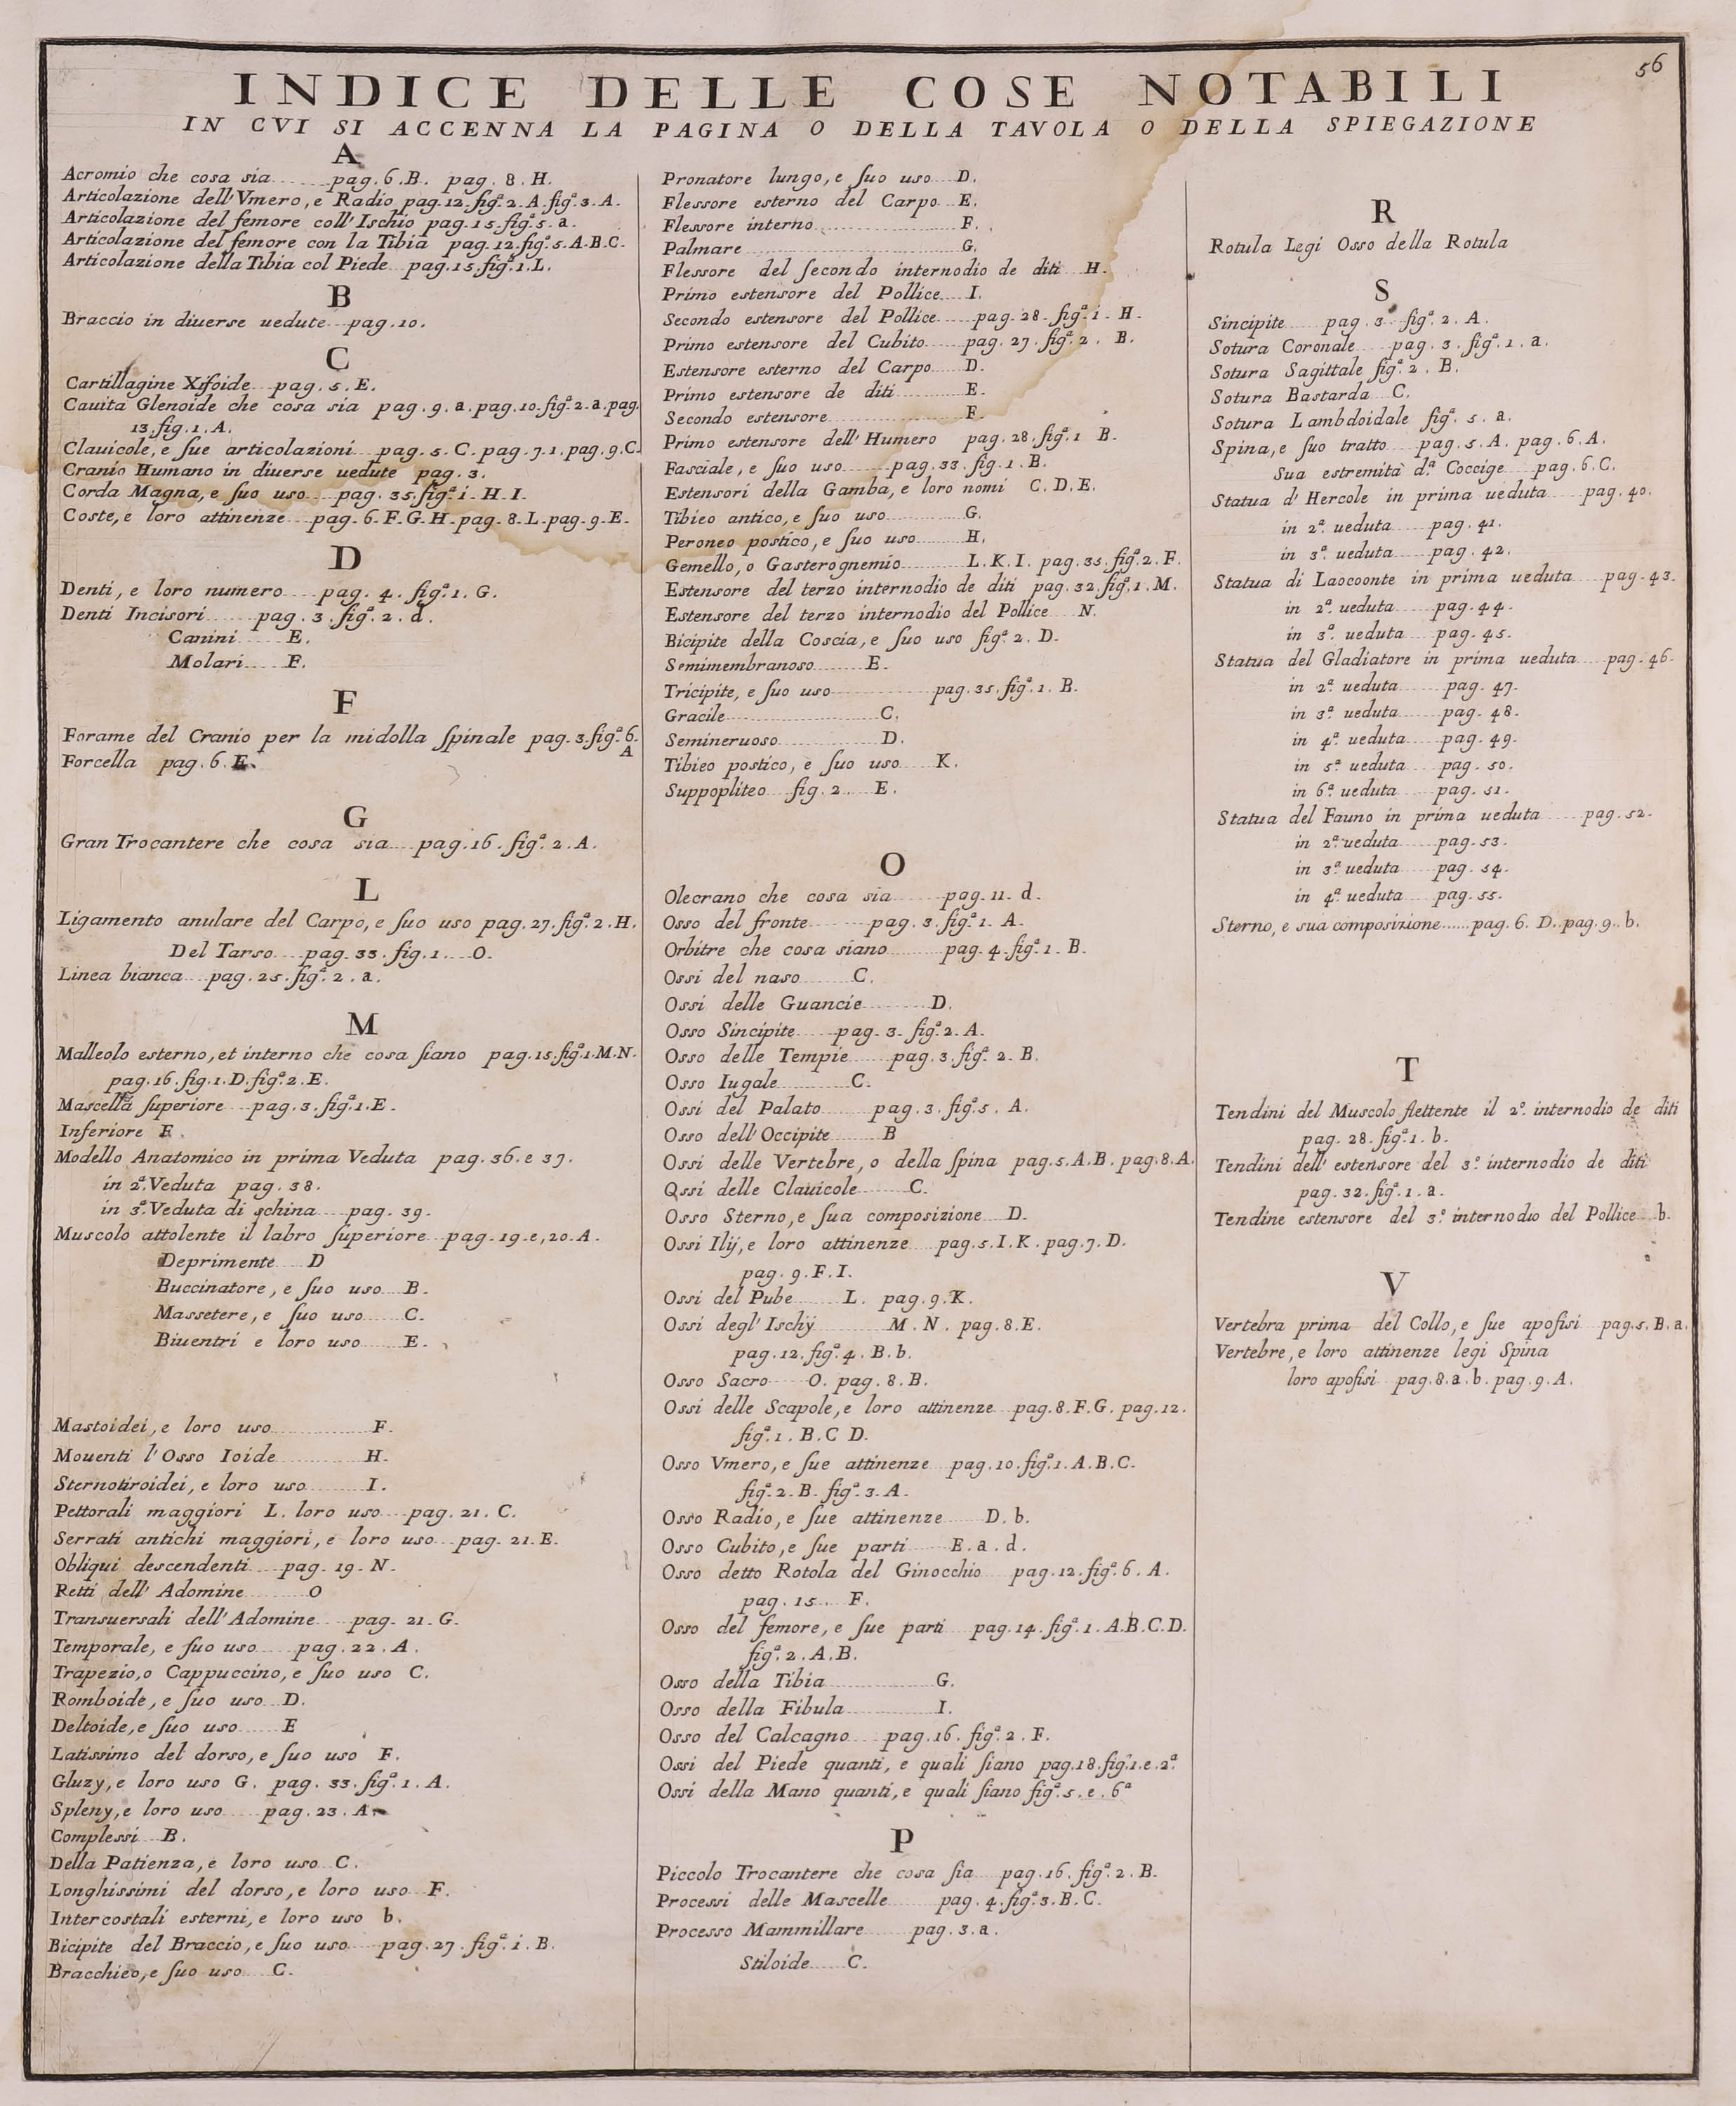 56
INDICE DELLE COSE NOTABILI
IN CVI SI ACCENNA LA PAGINA O DELLA TAVOLA O DELLA SPIEGAZIONE
A
Acromio che cosa sia......pag.6.B. pag.8.H.
Articolazione dell'Vmero, e Radio pag.12.figª.2.A.figª.3.A.
Articolazione del femore coll'Ischio pag.15.figª.5.a.
Articolazione del femore con la Tibia pag.12.figª.5.A.B.C.
Articolazione della Tibia col Piede pag.15.figª.1.L.
B
Braccio in diuerse uedute pag.10.
C
Cartillagine Xifoide pag.5.E.
Cauita Glenoide che cosa sia pag.9.a.pag.10.figª.2.a.pag.
13.fig.1.A.
Clauicole, e ſue articolazioni pag.5.C.pag.7.1.pag.9.C.
Cranio Humano in diuerse uedute pag.3.
Corda Magna, e ſuo uso pag.35.figª.i.H.I.
Coste, e loro attinenze pag.6.F.G.H.pag.8.L.pag.9.E.
D
Denti, e loro numero pag.4.figª.1.G.
Denti Incisori pag.3.figª.2.d.
Canini E.
Molari F.
F
Forame del Cranio per la midolla ſpinale pag.3.figª.6.
A
Forcella pag.6.E.
G
Gran Trocantere che cosa sia pag.16.figª.2.A.
L
Ligamento anulare del Carpo, e ſuo uso pag.27.figª.2.H.
Del Tarso pag.33.fig.1 O.
Linea bianca pag.25.figª.2.a.
M
Malleolo esterno, et interno che cosa ſiano pag.15.figª.1.M.N.
pag.16.fig.1.D.figª.2.E.
Mascella ſuperiore pag.3.figª.1.E.
Inferiore F.
Modello Anatomico in prima Veduta pag.36.e 37.
in 2ª.Veduta pag.38.
in 3ª.Veduta di schina pag.39.
Muscolo attolente il labro ſuperiore pag.19.e,20.A.
Deprimente D
Buccinatore, e ſuo uso B.
Massetere, e ſuo uso C.
Biuentri e loro uso E.
Mastoidei, e loro uso F.
Mouenti l'Osso Ioide H.
Sternotiroidei, e loro uso I.
Pettorali maggiori L. loro uso pag.21.C.
Serrati antichi maggiori, e loro uso pag.21.E.
Obliqui descendenti pag.19.N.
Retti dell'Adomine O
Transuersali dell'Adomine pag.21.G.
Temporale, e ſuo uso pag.22.A.
Trapezio, o Cappuccino, e ſuo uso C.
Romboide, e ſuo uso D.
Deltoide, e ſuo uso E
Latissimo del dorso, e ſuo uso F.
Gluzy, e loro uso G. pag.33.figª.1.A.
Spleny, e loro uso pag.23.A.
Complessi B.
Della Patienza, e loro uso C.
Longhissimi del dorso, e loro uso F.
Intercostali esterni, e loro uso b.
Bicipite del Braccio, e ſuo uso pag.27.figª.i.B.
Bracchieo, e ſuo uso C.
Pronatore lungo, e ſuo uso D.
Flessore esterno del Carpo E.
Flessore interno F.
Palmare G.
Flessore del ſecondo internodio de diti H.
Primo estensore del Pollice I.
Secondo estensore del Pollice pag.28.figª.i.H.
Primo estensore del Cubito pag.27.figª.2.B.
Estensore esterno del Carpo D.
Primo estensore de diti E.
Secondo estensore F.
Primo estensore dell'Humero pag.28.figª.1 B.
Fasciale, e ſuo uso pag.33.fig.1.B.
Estensori della Gamba, e loro nomi C.D.E.
Tibieo antico, e ſuo uso G.
Peroneo postico, e ſuo uso H.
Gemello, o Gasterognemio L.K.I. pag.35.figª.2.F.
Estensore del terzo internodio de diti pag.32.figª.1.M.
Estensore del terzo internodio del Pollice N.
Bicipite della Coscia, e ſuo uso figª.2.D.
Semimembranoso E.
Tricipite, e ſuo uso pag.35.figª.1.B.
Gracile C.
Semineruoso D.
Tibieo postico, e ſuo uso K.
Suppopliteo fig.2. E.
O
Olecrano che cosa sia pag.11.d.
Osso del fronte pag.3.figª.1.A.
Orbitre che cosa siano pag.4.figª.1.B.
Ossi del naso C.
Ossi delle Guancie D.
Osso Sincipite pag.3.figª.2.A.
Osso delle Tempie pag.3.figª.2.B.
Osso Iugale C.
Ossi del Palato pag.3.figª.5.A.
Osso dell'Occipite B
Ossi delle Vertebre, o della ſpina pag.5.A.B.pag.8.A.
Ossi delle Clauicole C.
Osso Sterno, e ſua composizione D.
Ossi Ilij, e loro attinenze pag.5.I.K.pag.7.D.
pag.9.F.I.
Ossi del Pube L. pag.9.K.
Ossi degl'Ischÿ M.N. pag.8.E.
pag.12.figª.4.B.b.
Osso Sacro O. pag.8.B.
Ossi delle Scapole, e loro attinenze pag.8.F.G. pag.12.
figª.1.B.C D.
Osso Vmero, e ſue attinenze pag.10.figª.1.A.B.C.
figª.2.B.figª.3.A.
Osso Radio, e ſue attinenze D.b.
Osso Cubito, e ſue parti E.a.d.
Osso detto Rotola del Ginocchio pag.12.figª.6.A.
pag.15. F.
Osso del femore, e ſue parti pag.14.figª.1.A.B.C.D.
figª.2.A.B.
Osso della Tibia G.
Osso della Fibula I.
Osso del Calcagno pag.16.figª.2.F.
Ossi del Piede quanti, e quali ſiano pag.18.figª.1.e.2ª.
Ossi della Mano quanti, e quali ſiano figª.5.e.6ª
P
Piccolo Trocantere che cosa ſia pag.16.figª.2.B.
Processi delle Mascelle pag.4.figª.3.B.C.
Processo Mammillare pag.3.a.
Stiloide C.
R
Rotula Legi Osso della Rotula
S
Sincipite pag.3 figª.2.A.
Sotura Coronale pag.3.figª.1.a.
Sotura Sagittale figª.2.B.
Sotura Bastarda C.
Sotura Lambdoidale figª.5.a.
Spina, e ſuo tratto pag.5.A. pag.6.A.
Sua estremità d.ª Coccige pag.6.C.
Statua d'Hercole in prima ueduta pag.40.
in 2ª.ueduta pag.41.
in 3ª.ueduta pag.42.
Statua di Laocoonte in prima ueduta pag.43.
in 2ª.ueduta pag.44.
in 3ª.ueduta pag.45.
Statua del Gladiatore in prima ueduta pag.46.
in 2ª.ueduta pag.47.
in 3ª.ueduta pag.48.
in 4ª.ueduta pag.49.
in 5ª.ueduta pag.50.
in 6ª.ueduta pag.51.
Statua del Fauno in prima ueduta pag.52.
in 2ª.ueduta pag.53.
in 3ª.ueduta pag.54.
in 4ª.ueduta pag.55.
Sterno, e sua composizione......pag.6.D.pag.9.b.
T
Tendini del Muscolo flettente il 2º.internodio de diti
pag.28.figª.1.b.
Tendini dell'estensore del 3º.internodio de diti
pag.32.figª.1.a.
Tendine estensore del 3º.internodio del Pollice b.
V
Vertebra prima del Collo, e ſue apofisi pag.5.B.a.
Vertebre, e loro attinenze legi Spina
loro apofisi pag.8.a.b.pag.9.A.